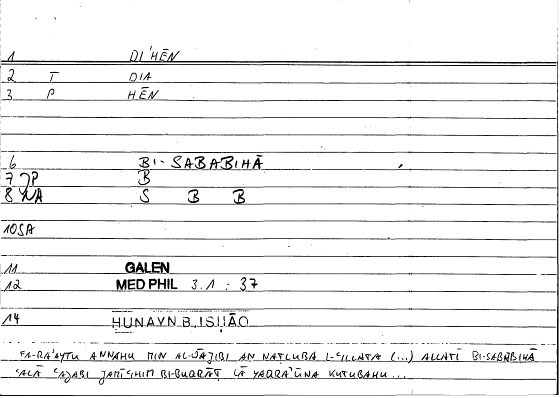 1 DI'HĒN
2 T DIA
3 P HĒN
6 BI-SABABIHĀ
7 P B
8 NA S B B
10 SA
11 GALEN
12 MED PHIL 3.1 : 37
14 HUNAYN B. ISHĀQ
FA-RA'AYTU ANNAHU MIN AL-WĀJIBI AN NATLUBA L-ʿILLATA (...) ALLATĪ BI-SABABIHĀ
ʿALĀ ʿAJABI JAMĪʿIHIM BI-BUQRĀṬ LĀ YAQRA'ŪNA KUTUBAHU...